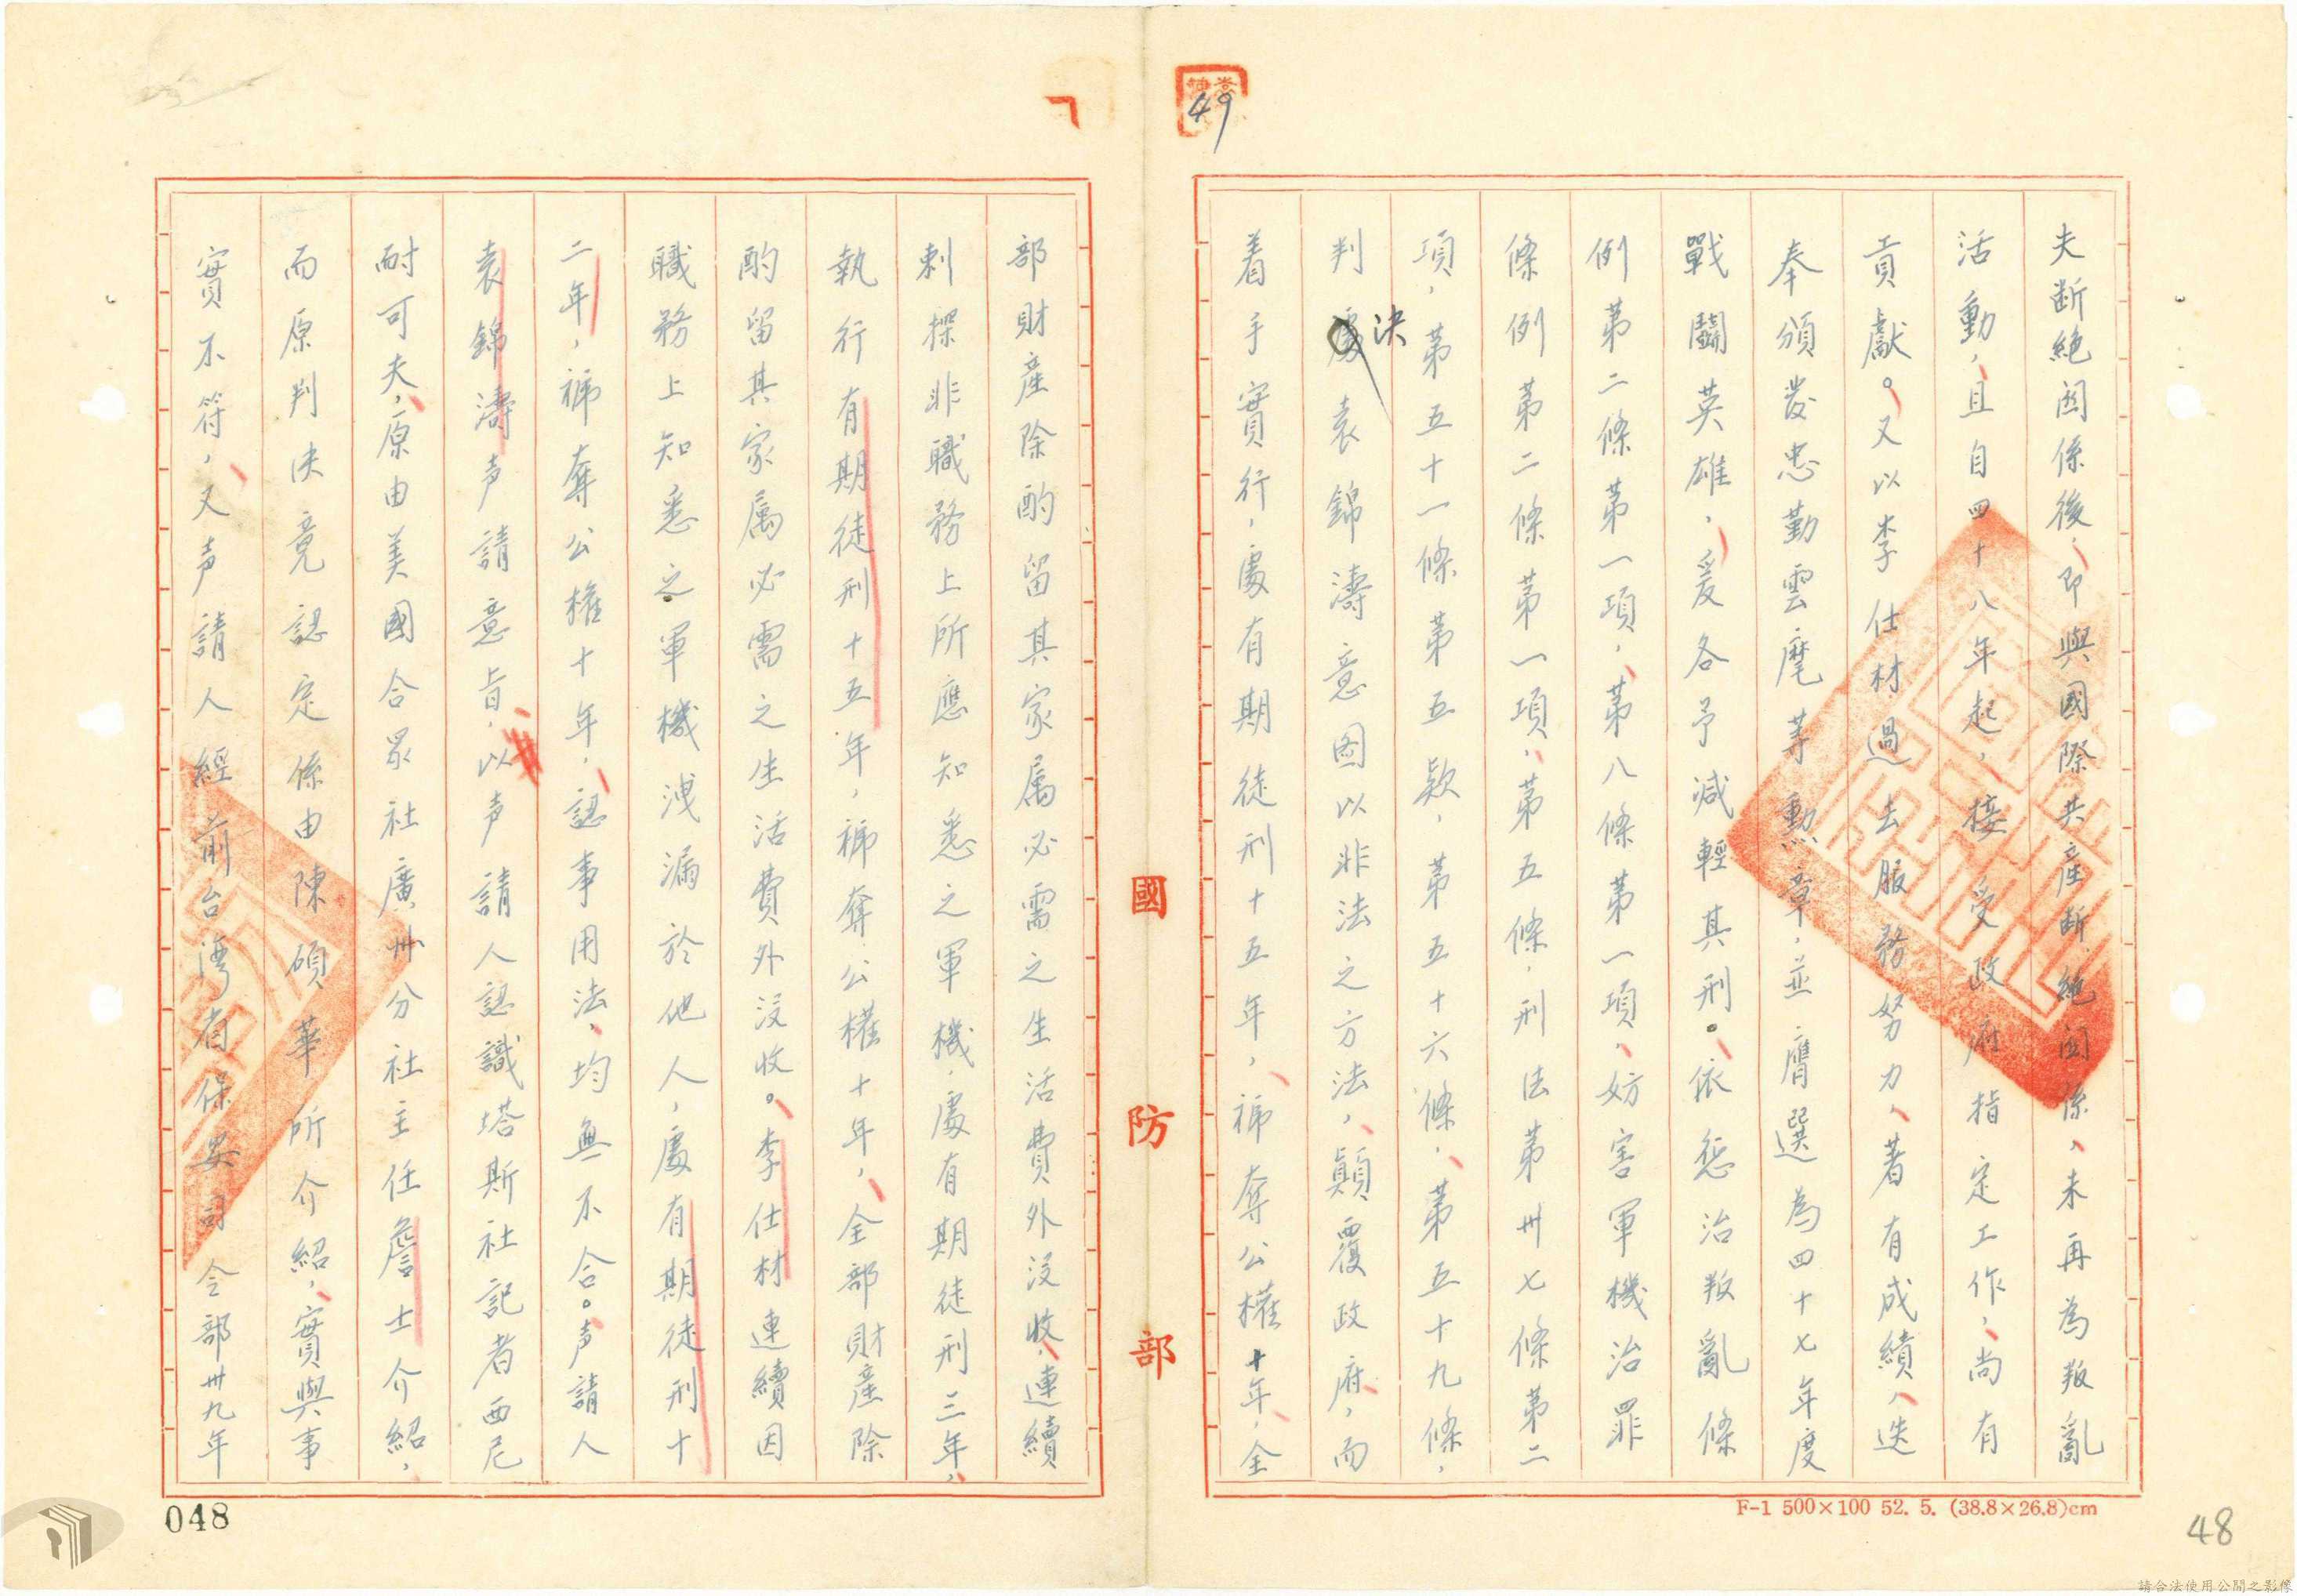 49
夫斷絕関係後，即與國際共產斷絕関係，未再為叛亂
活動，且自四十八年起，接受政府指定工作，尚有
貢獻。又以李仕材過去服務努力，著有成績，迭
奉頒發忠勤雲麾等勳章，並膺選為四十七年度
戰鬪英雄，爰各予減輕其刑。依懲治叛亂條
例第二條第一項，第八條第一項，妨害軍機治罪
條例第二條第一項，第五條，刑法第卅七條第二
項，第五十一條第五款，第五十六條，第五十九條，
判決袁錦濤意圖以非法之方法，顛覆政府，而
着手實行，處有期徒刑十五年，褫奪公權十年，全
部財產除酌留其家属必需之生活費外沒收，連續
刺探非職務上所應知悉之軍機，處有期徒刑三年，
執行有期徒刑十五年，褫奪公權十年，全部財產除
酌留其家属必需之生活費外沒收。李仕材連續因
職務上知悉之軍機洩漏於他人，處有期徒刑十
二年，褫奪公權十年，認事用法，均無不合。声請人
袁錦濤声請意旨，以声請人認識塔斯社記者西尼
耐可夫，原由美國合眾社廣州分社主任詹士介紹，
而原判決竟認定係由陳碩華所介紹，實與事
實不符，又声請人經前台灣省保安司令部卅九年
國防部
F-1 500×100 52. 5. (38.8×26.8)cm
048
48
請合法使用公開之影像